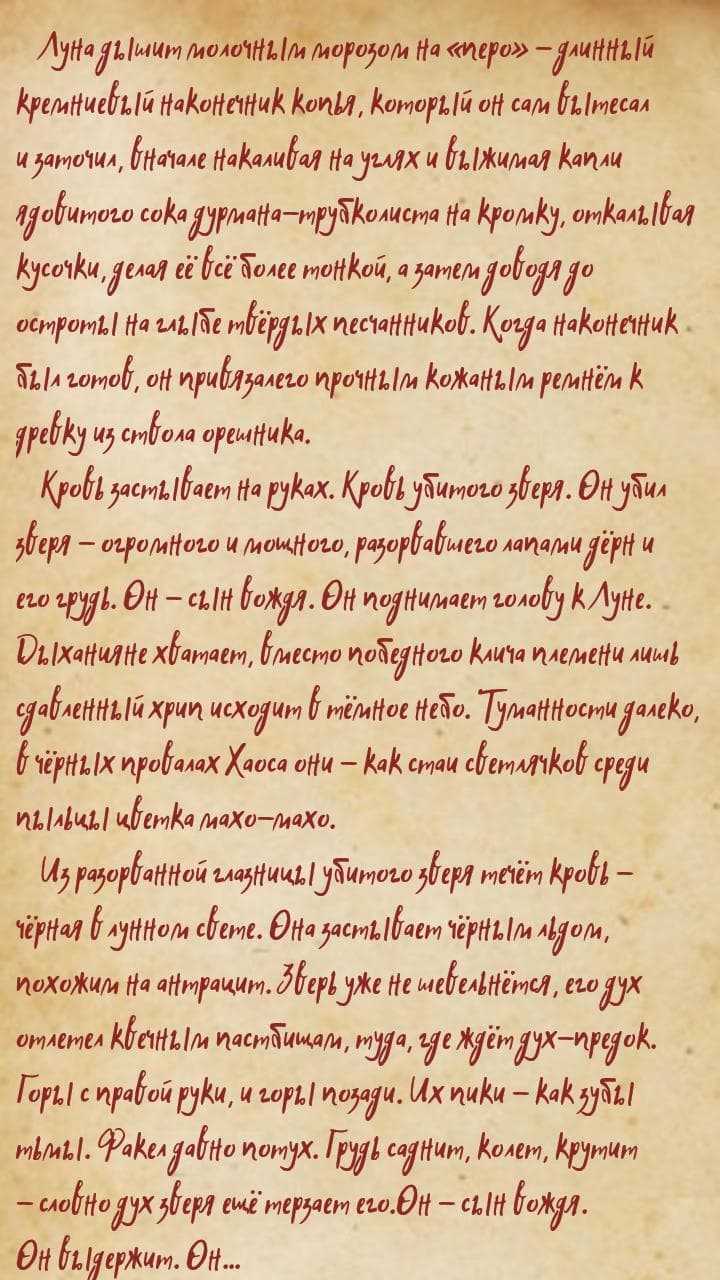 Луна дышит молочным морозом на «перо» – длинный
кремниевый наконечник копья, который он сам вытесал
и заточил, вначале накаливая на углях и выжимая капли
ядовитого сока дурмана–трубколиста на кромку, откалывая
кусочки, делая её всё более тонкой, а затем доводя до
остроты на глыбе твёрдых песчанников. Когда наконечник
был готов, он привязалего прочным кожаным ремнём к
древку из ствола орешника.
Кровь застывает на руках. Кровь убитого зверя. Он убил
зверя – огромного и мощного, разорвавшего лапами дёрн и
его грудь. Он – сын вождя. Он поднимает голову к Луне.
Дыханияне хватает, вместо победного клича племени лишь
сдавленный хрип исходит в тёмное небо. Туманности далеко,
в чёрных провалах Хаоса они – как стаи светлячков среди
пыльцы цветка махо–махо.
Из разорванной глазницы убитого зверя течёт кровь –
чёрная в лунном свете. Она застывает чёрным льдом,
похожим на антрацит. Зверь уже не шевельнётся, его дух
отлетел квечным пастбищам, туда, где ждёт дух–предок.
Горы с правой руки, и горы позади. Их пики – как зубы
тьмы. Факел давно потух. Грудь саднит, колет, крутит
– словно дух зверя ещё терзает его.Он – сын вождя.
Он выдержит. Он...